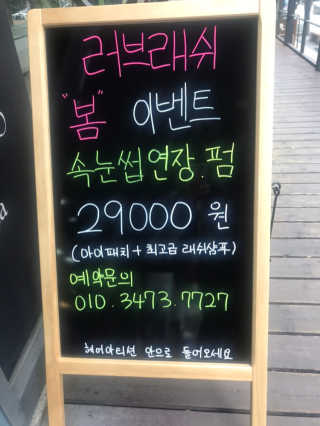 러브래쉬
"봄" 이벤트
속눈썹연장.펌
29000 원
(아이패치 + 최고급 래쉬샴푸)
예약문의
010.3473.7727
헤어아티션 안으로 들어오세요